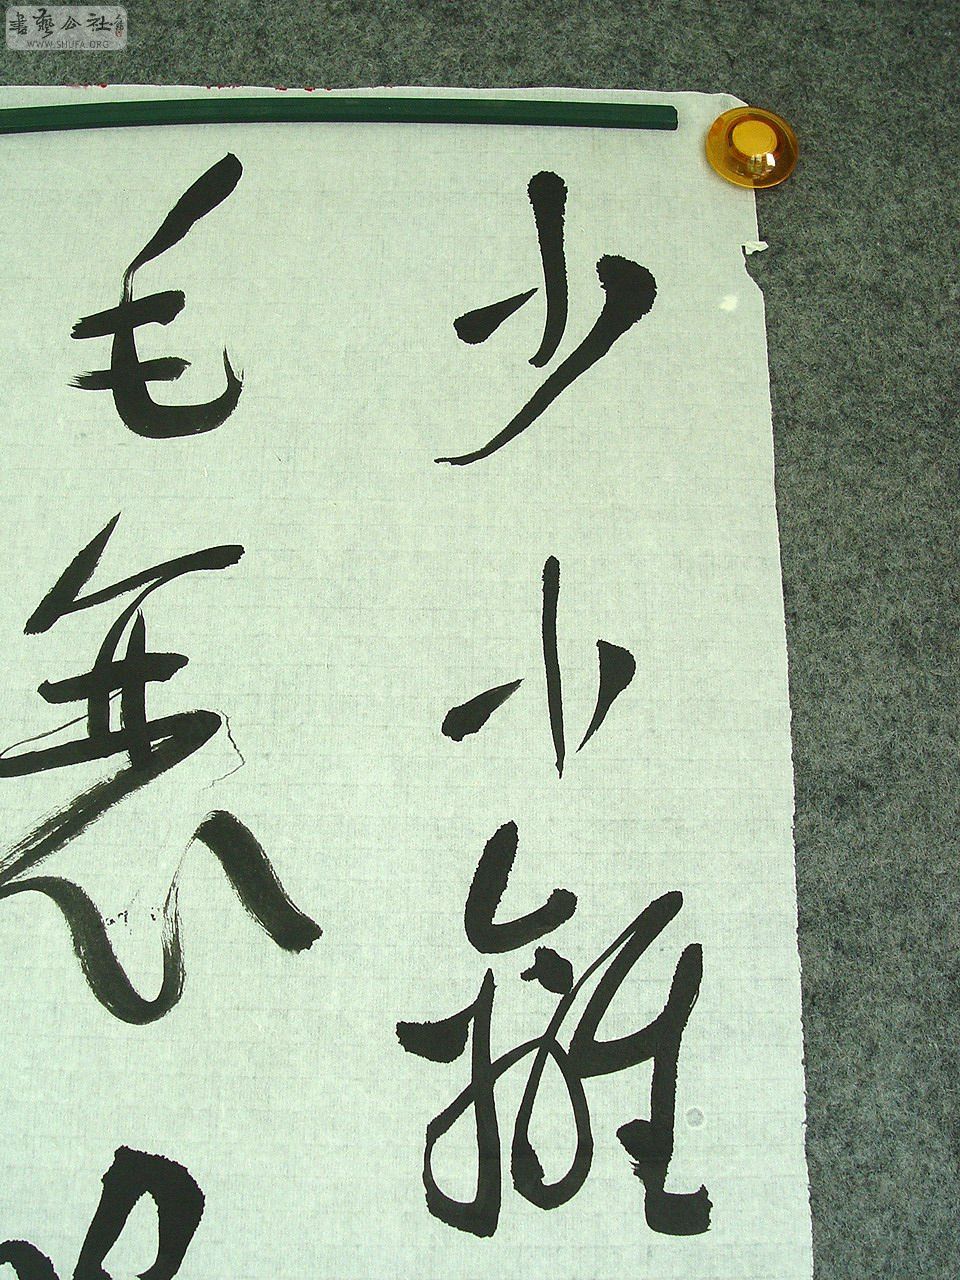 書藝公社
WWW.SHUFA.ORG
少小離
毛衰